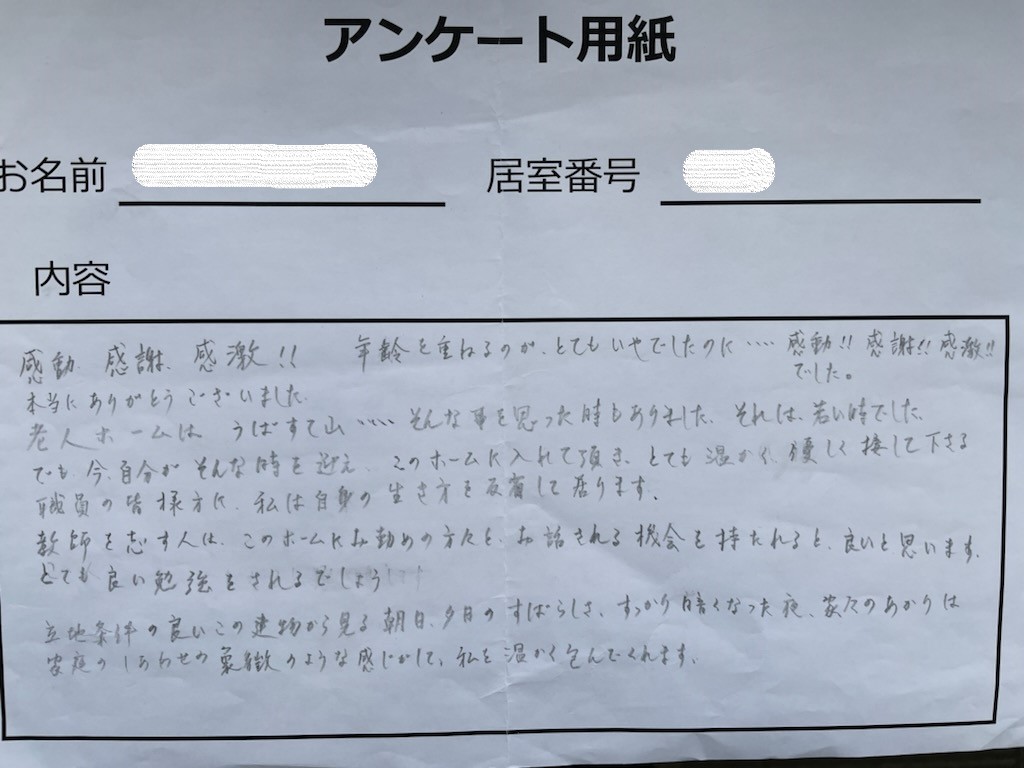 アンケート用紙
お名前 居室番号
内容
感動、感謝、感激!! 年齢を重ねるのが、とてもいやでしたのに‥‥ 感動!! 感謝!! 感激!!
でした。
本当にありがとうございました。
老人ホームは うばすて山‥‥ そんな事を思った時もありました。それは、若い時でした。
でも、今、自分がそんな時を迎え、このホームに入れて頂き、とても温かく、優しく接して下さる
職員の皆様方に、私は自身の生き方を反省して居ります。
教師を志す人は、このホームにお勤めの方々と、お話される機会を持たれると、良いと思います。
とても良い勉強をされるでしょう
立地条件の良いこの建物から見る朝日、夕日のすばらしさ、すっかり暗くなった夜、家々のあかりは
家庭のしあわせの象徴のような感じがして、私を温かく包んでくれます。